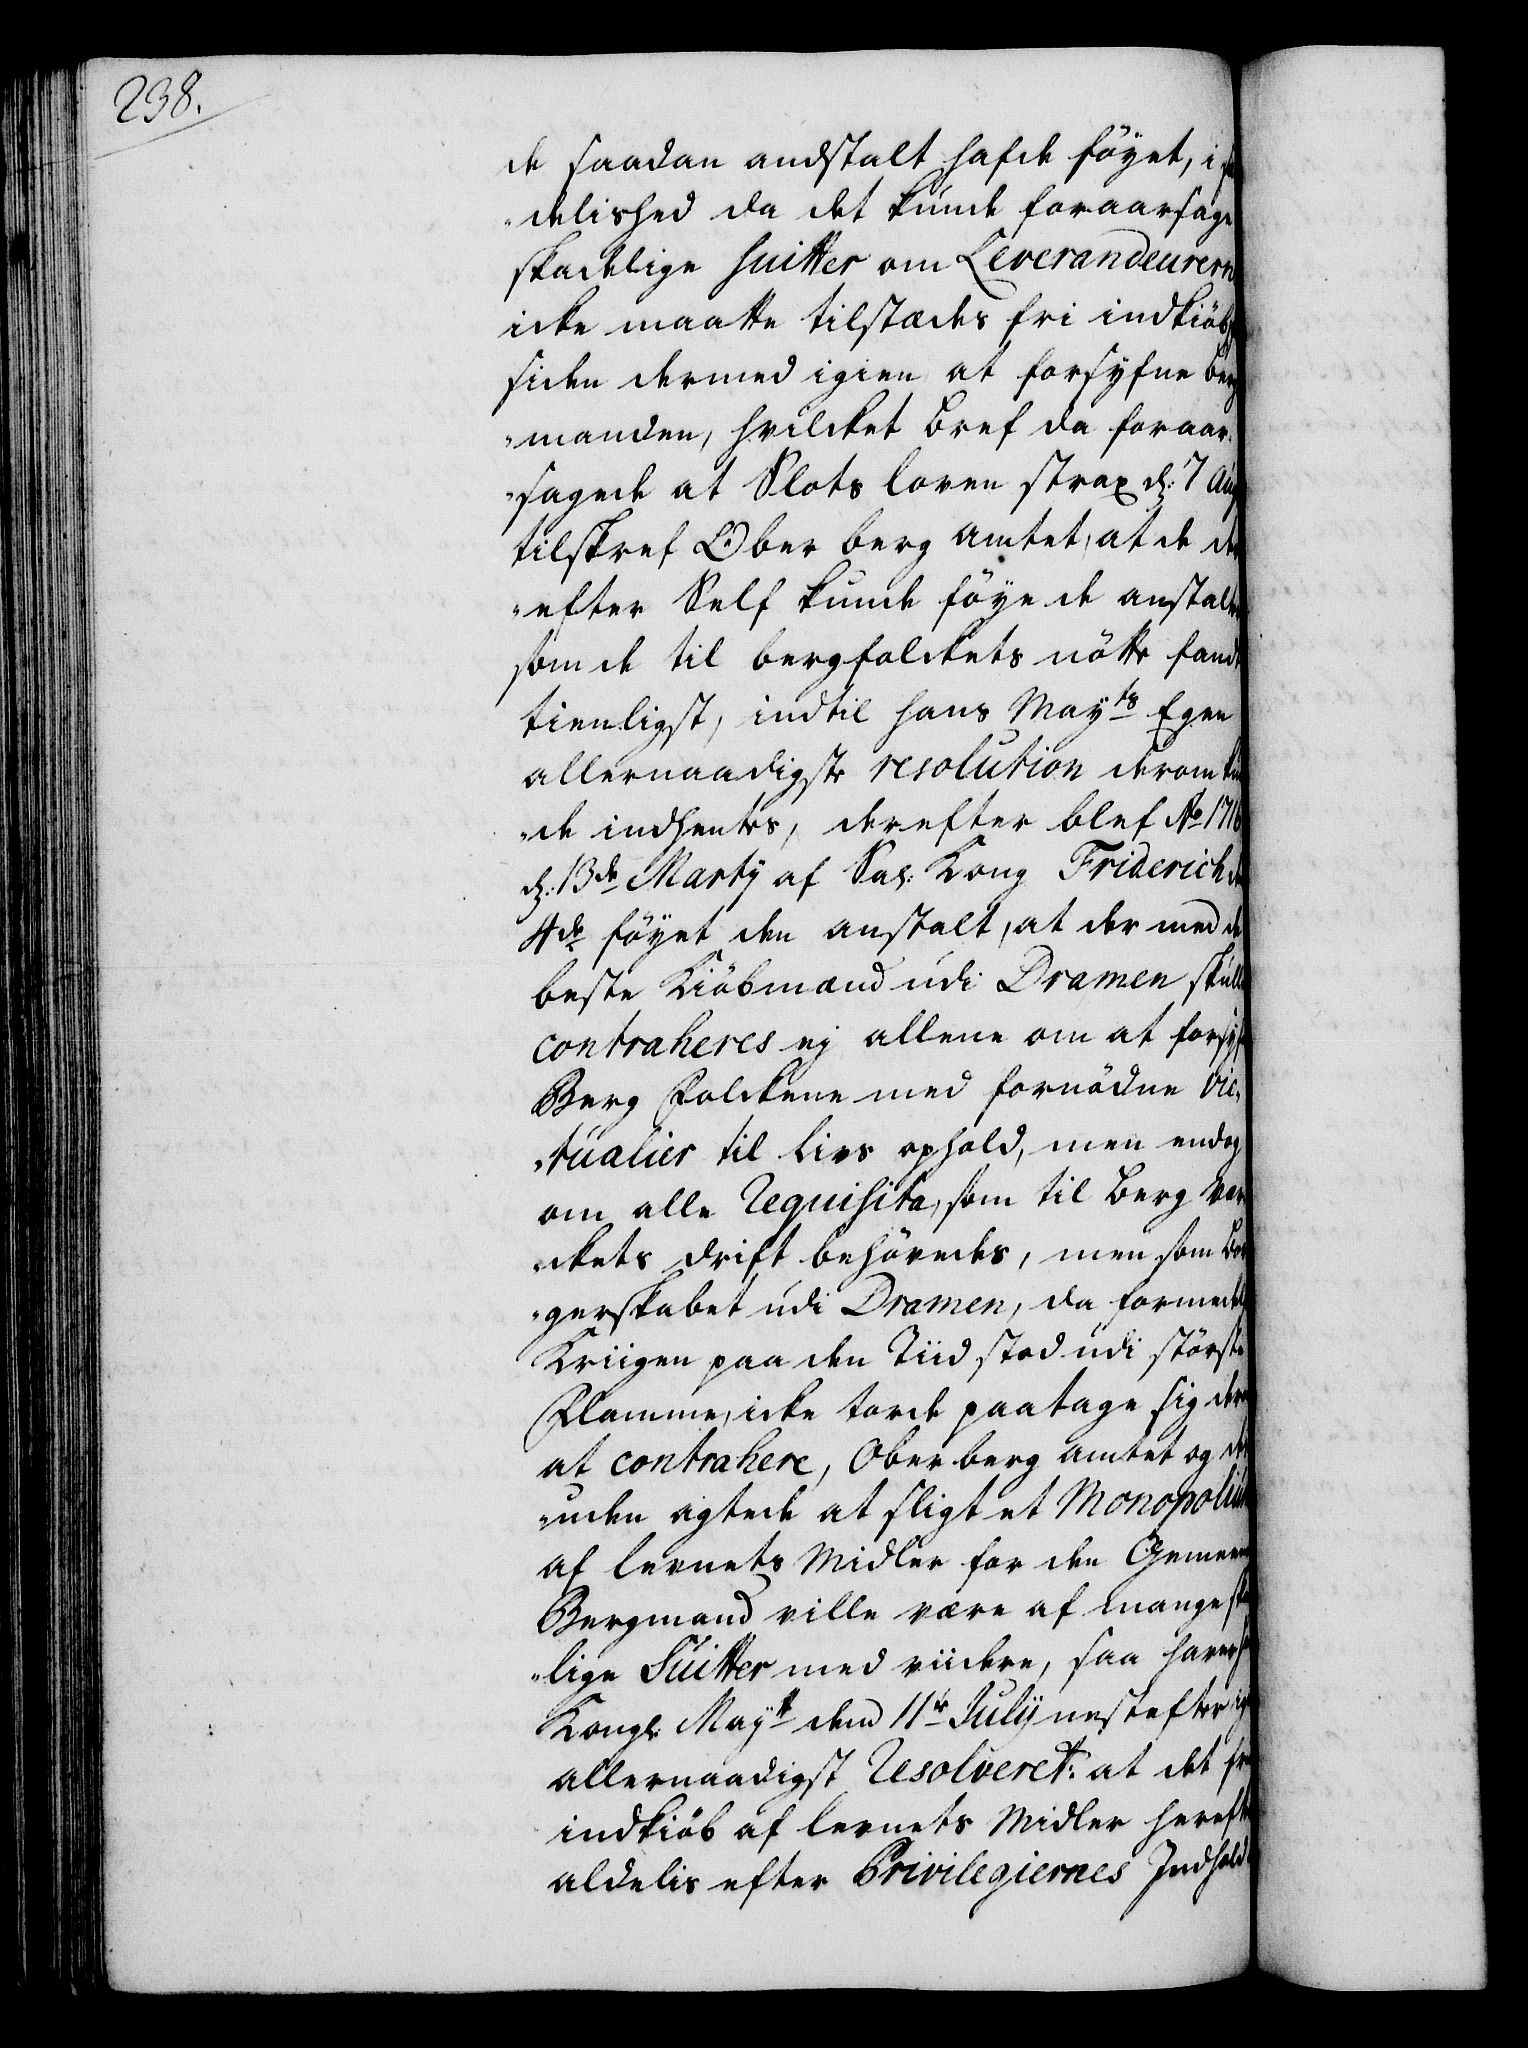 238.
de saadan andstalt hafde föyet, i
-delished da det kunde foraarsage
skadelige Suitter om Leverandeurern
icke maatte tilstædes fri indkiöb,
siden dermed igien at forsyfne berg
-manden, hvilcket bref da foraar-
-sagede at Slots loven strax d: 7 Aug
tilskref Ober berg Amtet, at de der
-efter Self kunde föye de anstalter
som de til bergfolckets nötte fandt
tienligst, indtil hans Mayts Egen
allernaadigste resolution derom kun
-de indhentes, derefter blef Ao 1716
d: 13de Marty af Sal: Kong Friderich de
4de föyet den anstalt, at der med de
beste Kiöbmænd udi Dramen skulle
contraheres ej allene om at forsyf
Berg Folckene med fornödne vic-
-tualier til livs ophold, men endog
om alle Requisita, som til Berg Ver
-ckets drift behövedes, men som Bor
-gerskabet udi Dramen, da formedelst
Kriigen paa den Tiid stod udi störste
Flamme, icke torde paatage sig der
at contrahere, Ober berg amtet og des
-uden agtede at sligt et Monopolium
af levnets Midler for den Gemeene
Bergmand ville være af mange ska
-lige Suitter med viidere, saa haver h
Kongl: Maytt dend 11te July nest efter ig
allernaadigst Resolveret: at det fri
indkiöb af levnets Midler hereft
aldelis efter Privilegiernes Indhold